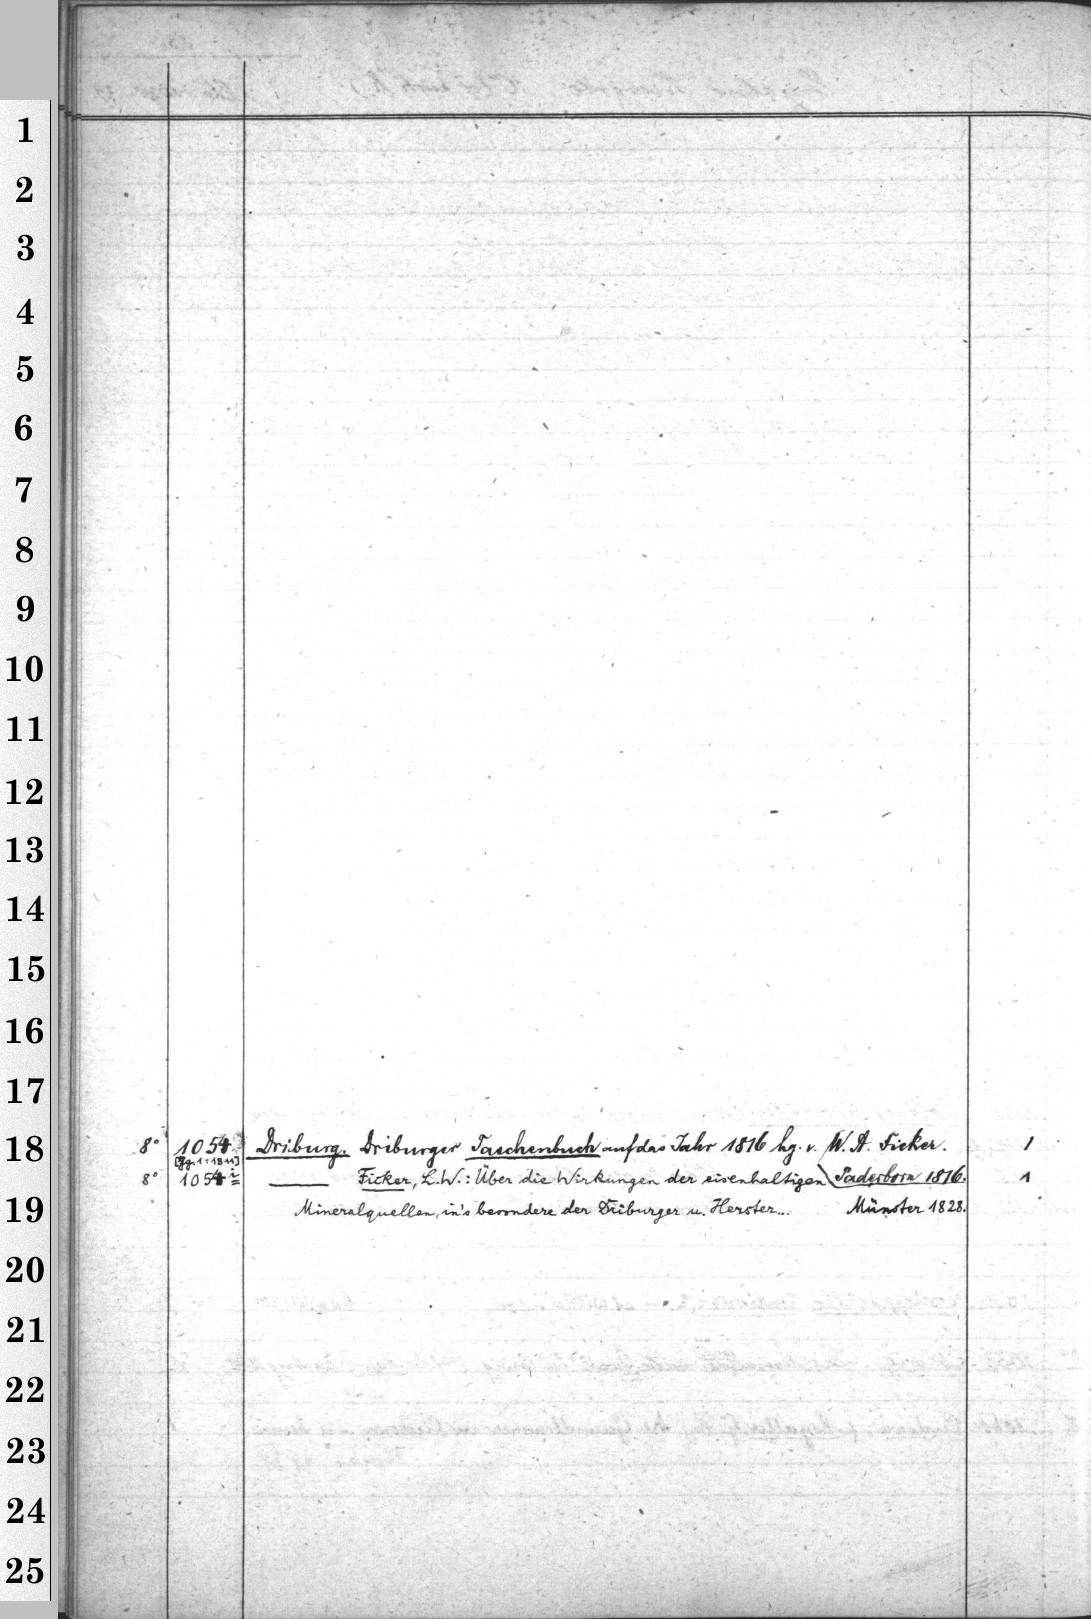 1
2
3
4
5
6
7
8
9
10
11
12
13
14
15
16
17
18
8° 1054 Driburg. Driburger Taschenbuch auf das Jahr 1816 hg. v. W. A. Ficker. 1
8° 1054 i Ficker, L.W.: Über die Wirkungen der eisenhaltigen Paderborn 1816. 1
19
Mineralquellen, in's besondere der Driburger u. Herster... Münster 1828.
20
21
22
23
24
25